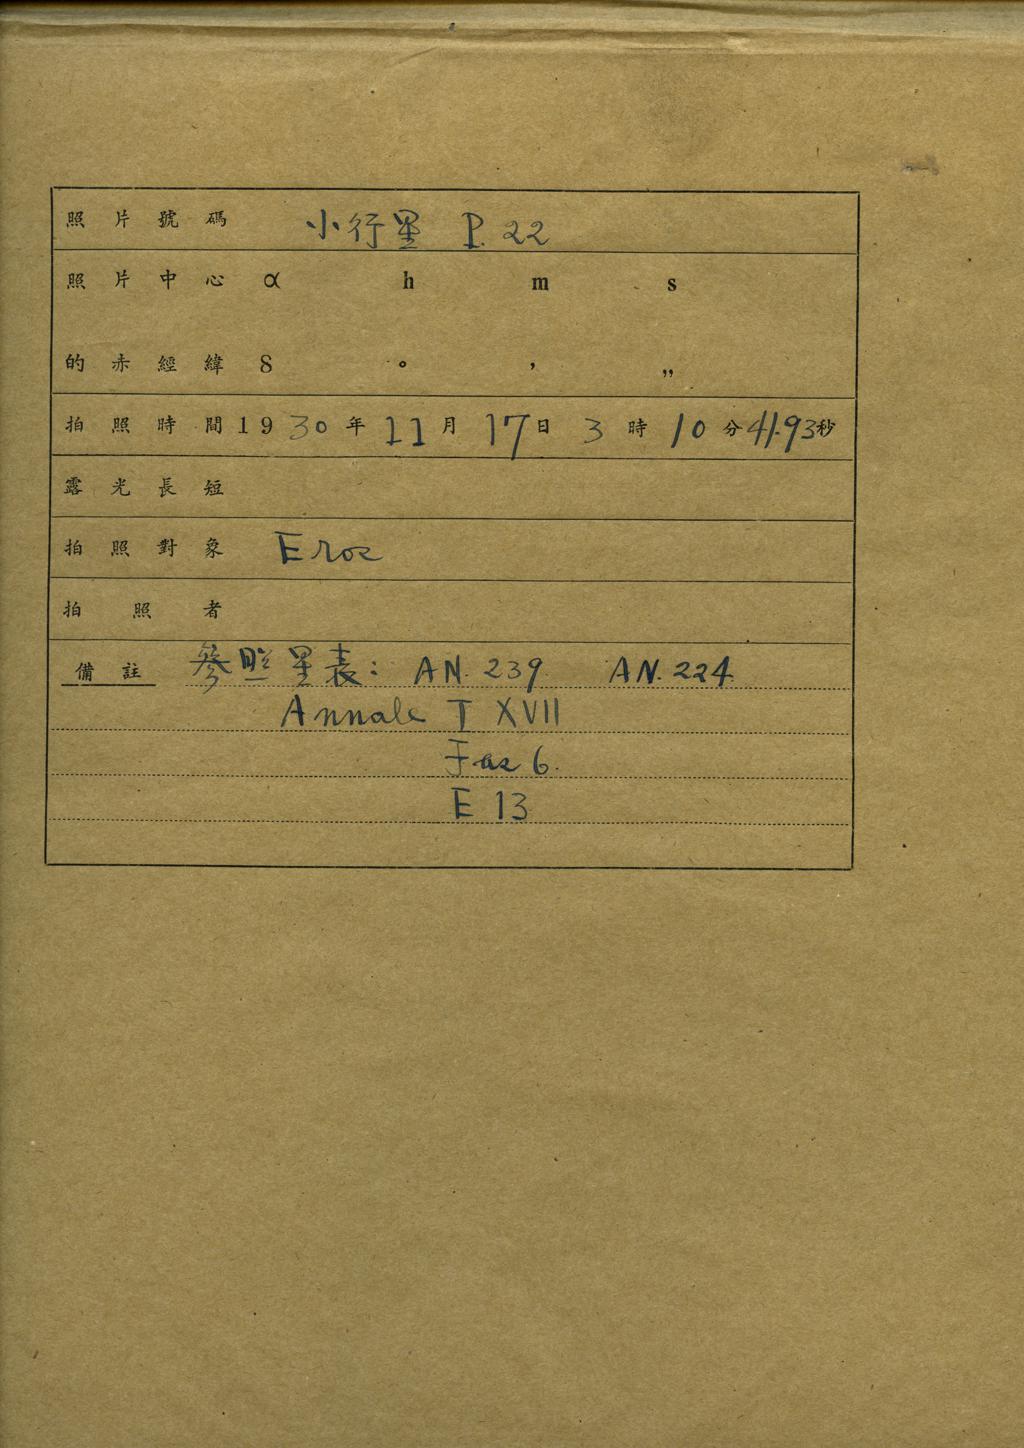 照片號碼 小行星 P. 22
照片中心 α h m s
的赤經緯 δ ° ′ ″
拍照時間 1930年11月17日3時10分41.93秒
露光長短
拍照對象 Eros
拍照者
備註 參照星表: AN. 239 AN. 224
Annale T XVII
Fas 6.
E 13